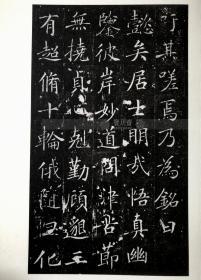 行其嗟焉乃為銘曰
懿矣居士明哉悟真幽
鑒彼岸妙道問津苦節
無撓貞心剋勤顧邈三
有超脩十輪俄隨化